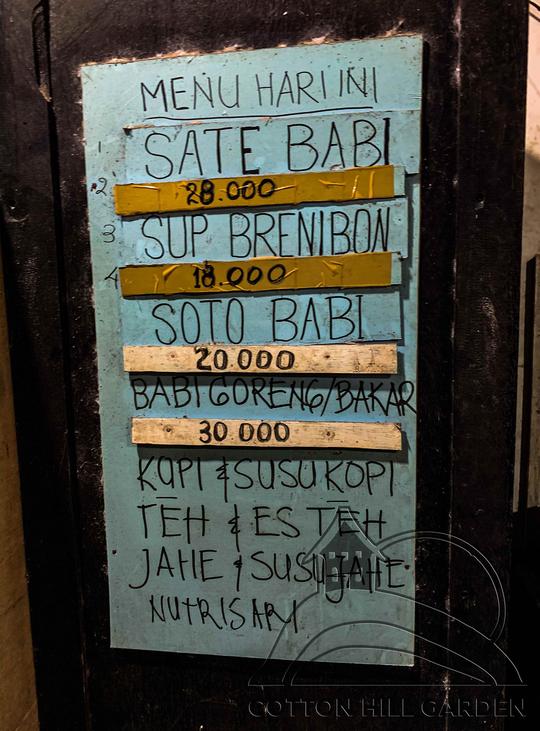 MENU HARI INI
1
SATE BABI
2
28.000
3
SUP BRENIBON
4
18.000
SOTO BABI
20.000
BABI GORENG/BAKAR
30.000
KOPI & SUSU KOPI
TEH & ES TEH
JAHE & SUSU JAHE
NUTRISARI
COTTON HILL GARDEN